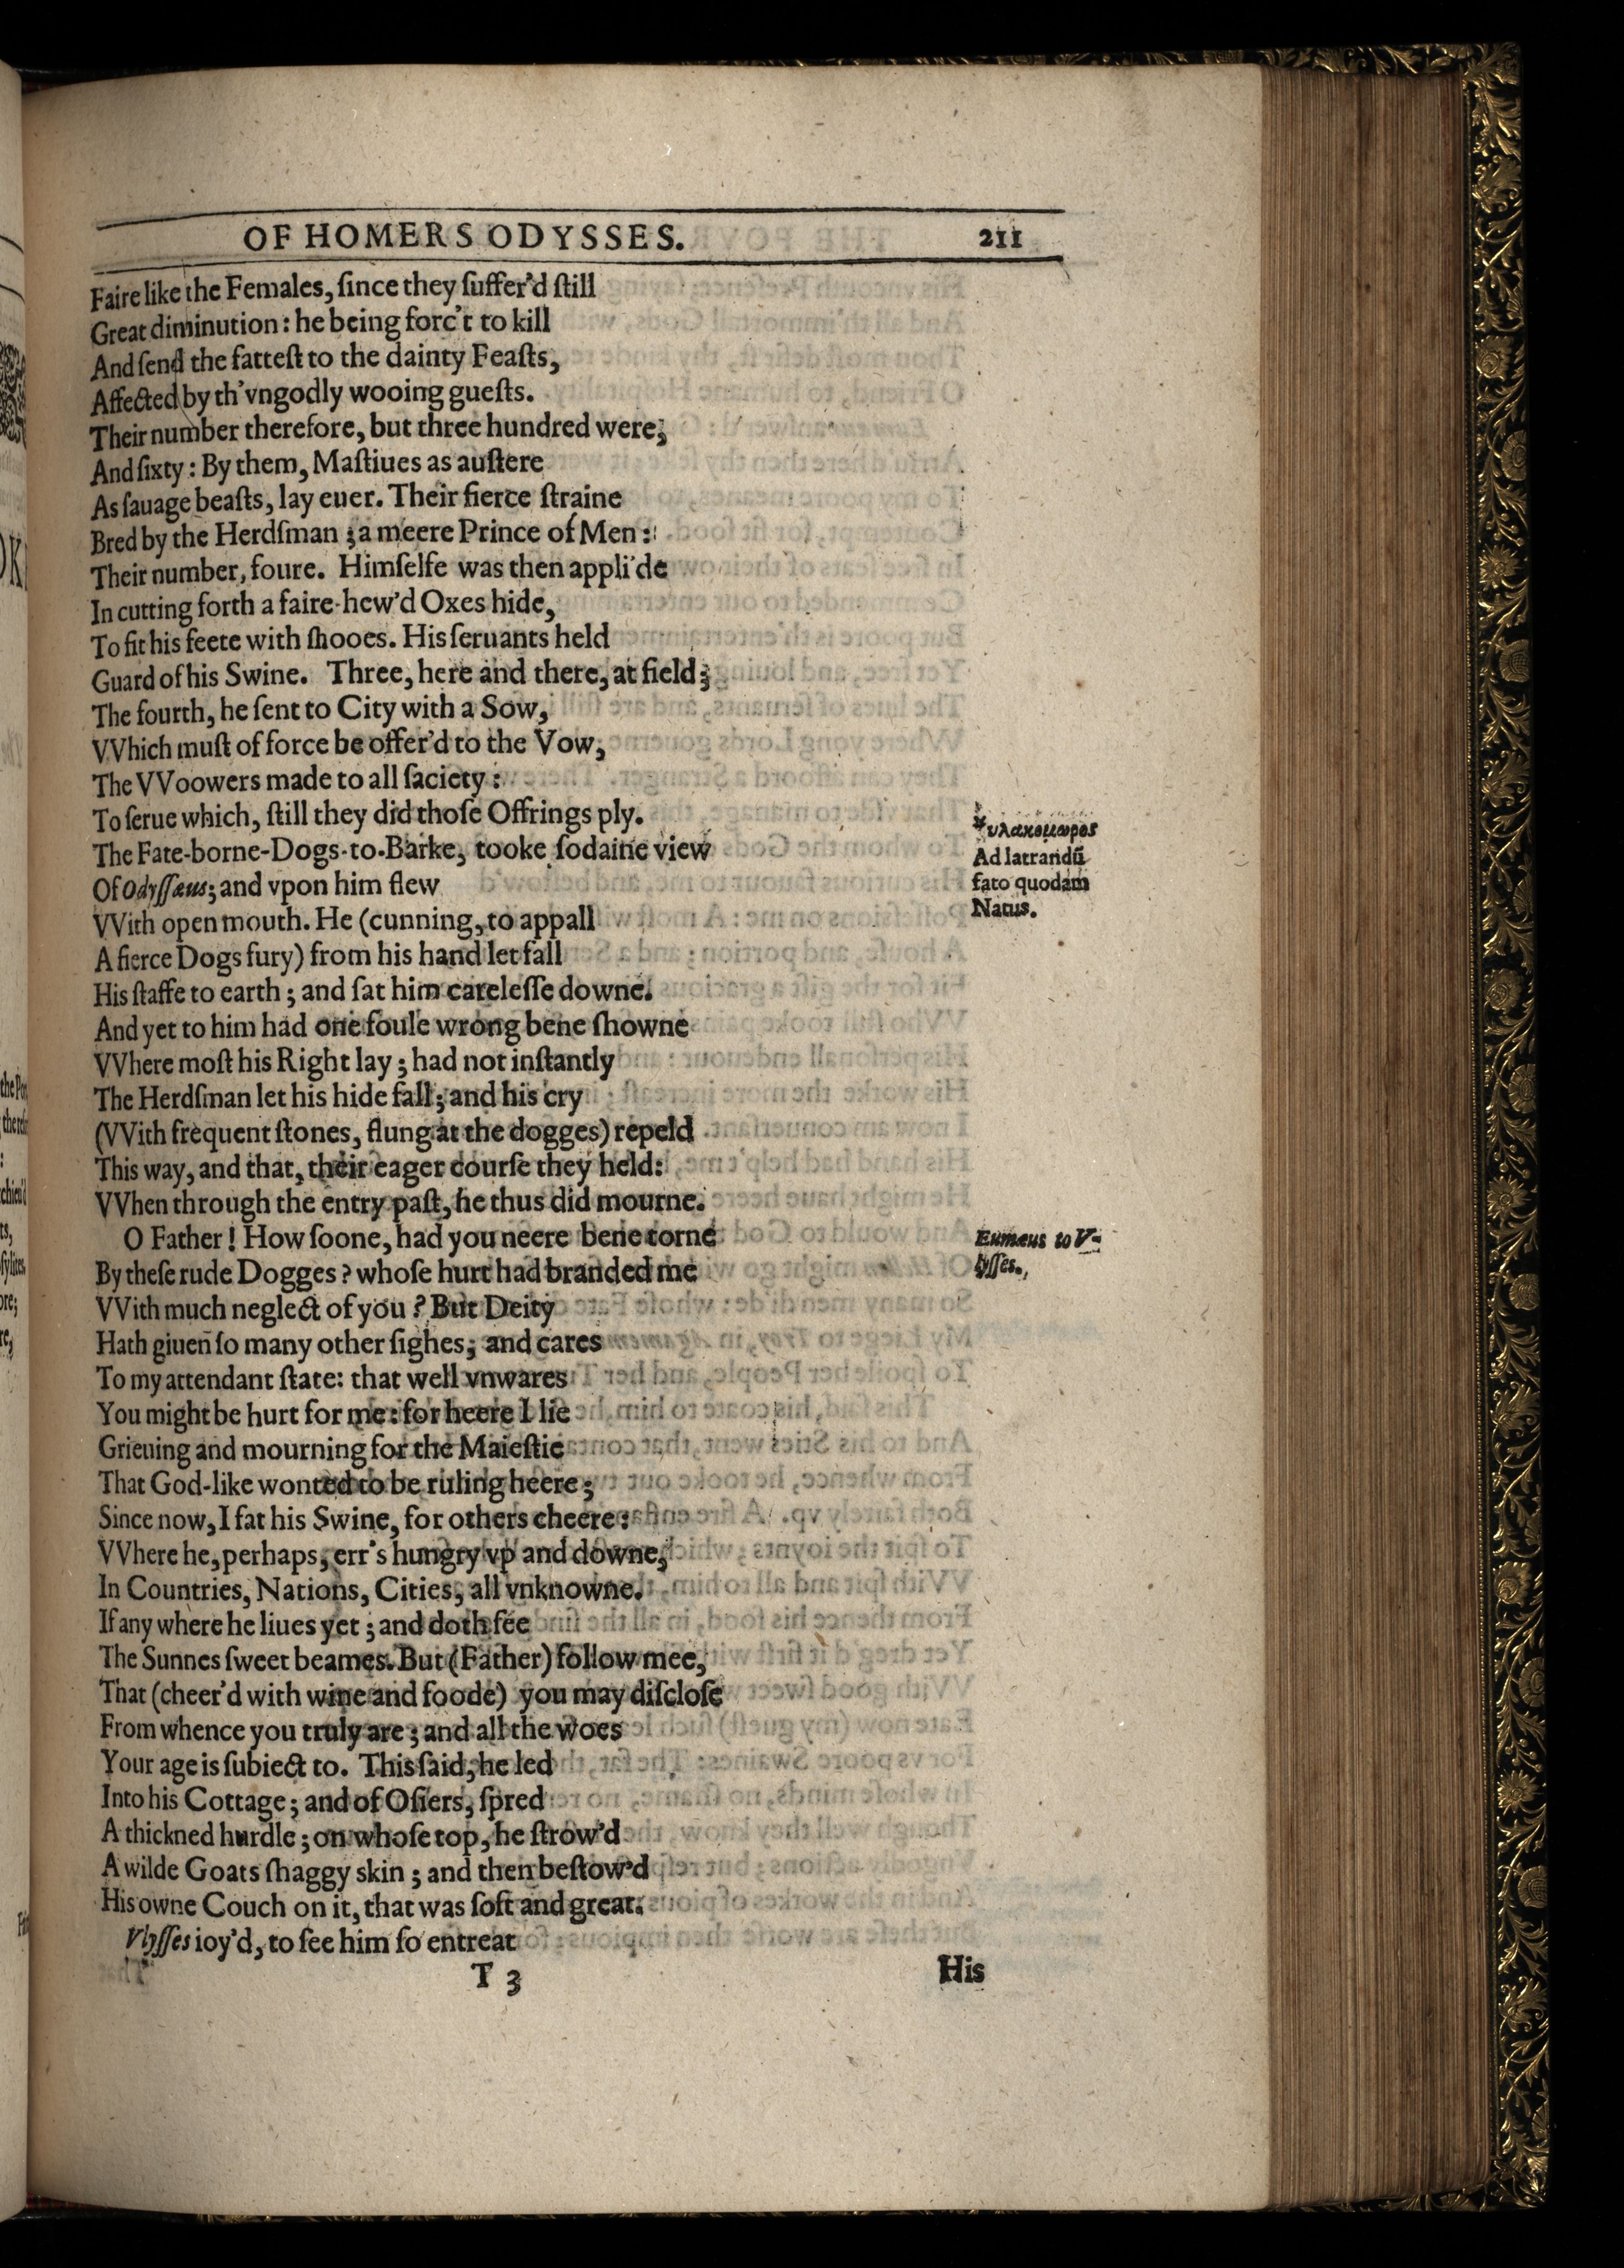 OF HOMERS ODYSSES. 211
Faire like the Females, ſince they ſuffer'd ſtill
Great diminution: he being forc't to kill
And ſend the fatteſt to the dainty Feaſts,
Affected by th'vngodly wooing gueſts.
Their number therefore, but three hundred were;
And ſixty: By them, Maſtiues as auſtere
As ſauage beaſts, lay euer. Their fierce ſtraine
Bred by the Herdſman; a meere Prince of Men:
Their number, foure. Himſelfe was then appli'de
In cutting forth a faire-hew'd Oxes hide,
To fit his feete with ſhooes. His ſeruants held
Guard of his Swine. Three, here and there, at field;
The fourth, he ſent to City with a Sow,
VVhich muſt of force be offer'd to the Vow,
The VVoowers made to all ſaciety:
To ſerue which, ſtill they did thoſe Offrings ply.
The Fate-borne-Dogs-to-Barke, tooke ſodaine view
Of Odyſſæus; and vpon him flew
VVith open mouth. He (cunning, to appall
A fierce Dogs fury) from his hand let fall
His ſtaffe to earth; and ſat him careleſſe downe.
And yet to him had one foule wrong bene ſhowne
VVhere moſt his Right lay; had not inſtantly
The Herdſman let his hide fall; and his cry
(VVith frequent ſtones, flung at the dogges) repeld
This way, and that, their eager courſe they held:
VVhen through the entry paſt, he thus did mourne.
O Father! How ſoone, had you neere bene torne
By theſe rude Dogges? whoſe hurt had branded me
VVith much neglect of you? But Deity
Hath giuen ſo many other ſighes; and cares
To my attendant ſtate: that well vnwares
You might be hurt for me: for heere I lie
Grieuing and mourning for the Maieſtie
That God-like wonted to be ruling heere;
Since now, I fat his Swine, for others cheere:
VVhere he, perhaps, err's hungry vp and downe,
In Countries, Nations, Cities, all vnknowne.
If any where he liues yet; and doth ſee
The Sunnes ſweet beames. But (Father) follow mee,
That (cheer'd with wine and foode) you may diſcloſe
From whence you truly are; and all the woes
Your age is ſubiect to. This ſaid, he led
Into his Cottage; and of Oſiers, ſpred
A thickned hurdle; on whoſe top, he ſtrow'd
A wilde Goats ſhaggy skin; and then beſtow'd
His owne Couch on it, that was ſoft and great.
Vlyſſes ioy'd, to ſee him ſo entreat
T 3 His
*υλακομωρος
Ad latrandū
fato quodam
Natus.
Eumæus to V-
lyſſes.